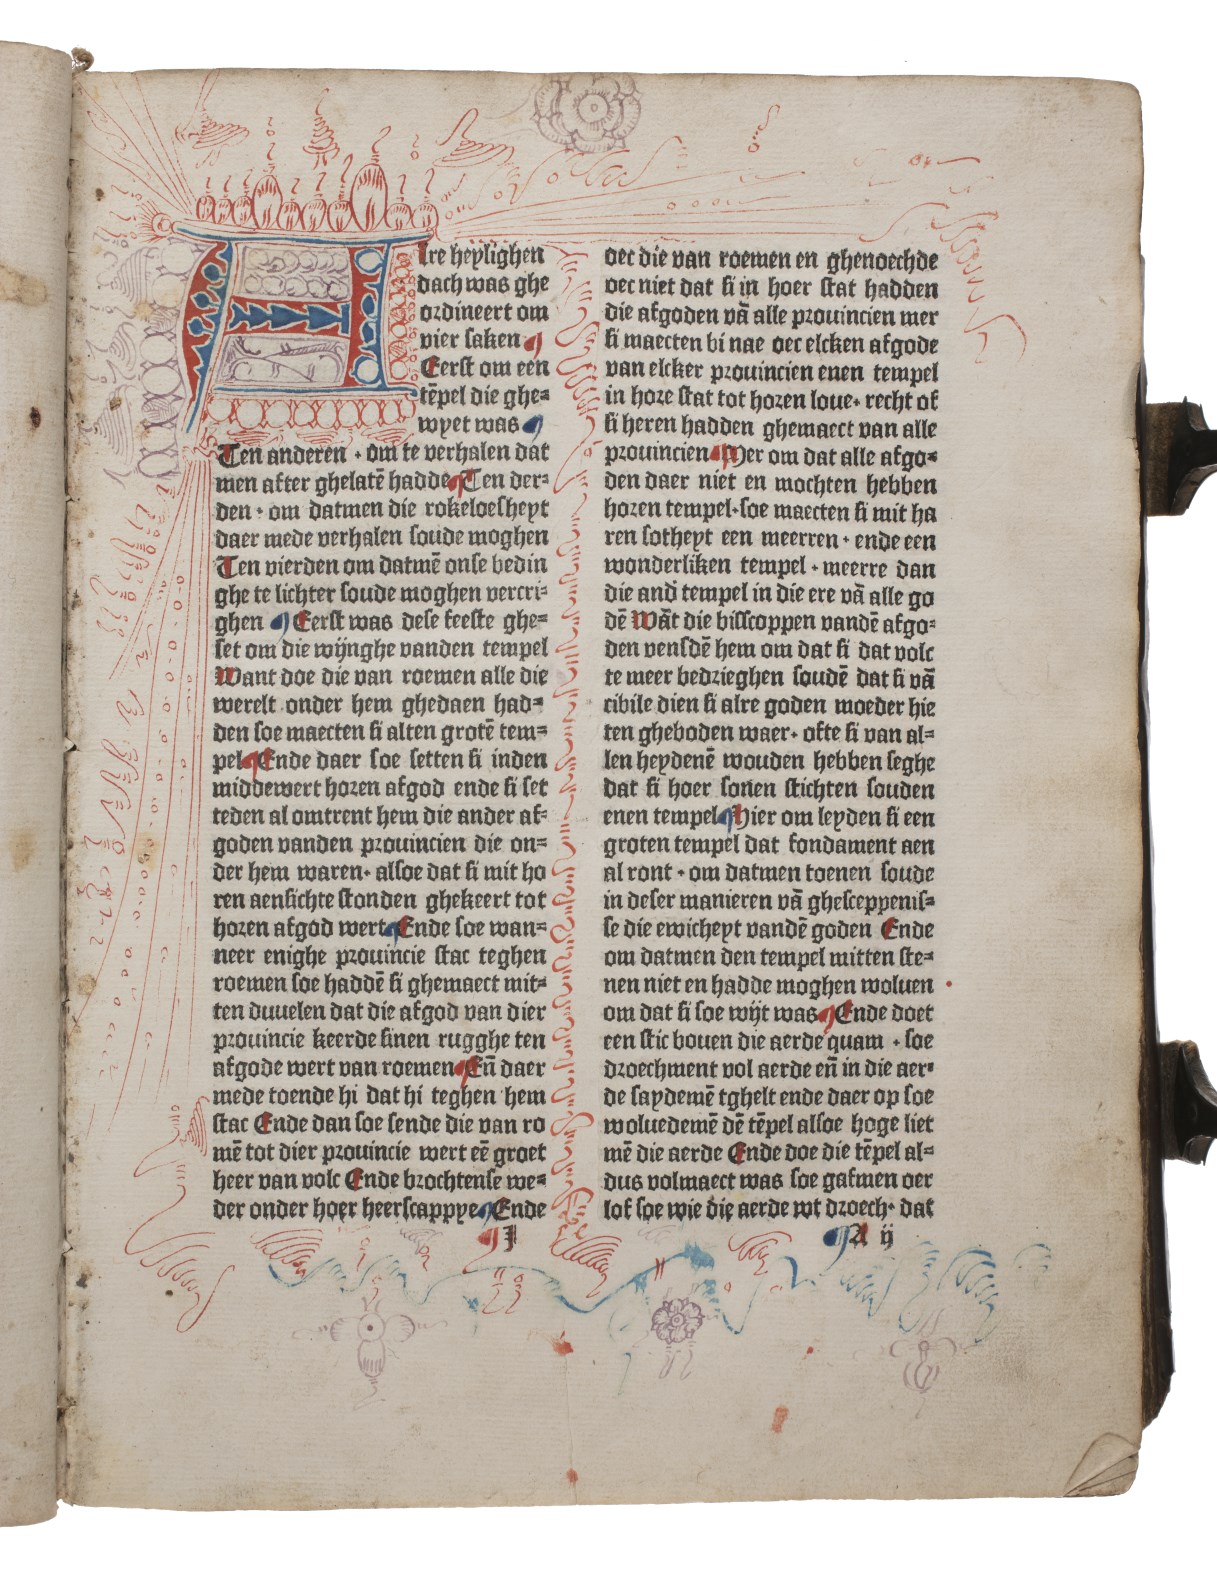 Alre heylighen
dach was ghe
ordineert om
vier saken
Eerst om een
tēpel die ghe=
wyet was
Ten anderen · om te verhalen dat
men after ghelatē hadde Ten der=
den · om datmen die rokeloesheyt
daer mede verhalen soude moghen
Ten vierden om datmē onse bedin
ghe te lichter soude moghen vercri=
ghen Eerst was dese feeste ghe=
set om die wijnghe vanden tempel
Want doe die van roemen alle die
werelt onder hem ghedaen had=
den soe maecten si alten grotē tem=
pel Ende daer soe setten si inden
middewert horen afgod ende si set
teden al omtrent hem die ander af=
goden vanden prouincien die on=
der hem waren · alsoe dat si mit ho
ren aensichte stonden ghekeert tot
horen afgod wert Ende soe wan=
neer enighe prouincie stac teghen
roemen soe haddē si ghemaect mit=
ten duuelen dat die afgod van dier
prouincie keerde sinen rugghe ten
afgode wert van roemen En̄ daer
mede toende hi dat hi teghen hem
stac Ende dan soe sende die van ro
mē tot dier prouincie wert eē groet
heer van volc Ende brochtense we=
der onder hoer heerscappye Ende
J
oec die van roemen en ghenoechde
oec niet dat si in hoer stat hadden
die afgoden vā alle prouincien mer
si maecten bi nae oec elcken afgode
van elcker prouincien enen tempel
in hore stat tot horen loue · recht of
si heren hadden ghemaect van alle
prouincien Mer om dat alle afgo=
den daer niet en mochten hebben
horen tempel · soe maecten si mit ha
ren sotheyt een meerren · ende een
wonderliken tempel · meerre dan
die and̄ tempel in die ere vā alle go
dē Wāt die bisscoppen vandē afgo=
den vensdē hem om dat si dat volc
te meer bedrieghen soudē dat si vā
cibile dien si alre goden moeder hie
ten gheboden waer · ofte si van al=
len heydenē wouden hebben seghe
dat si hoer sonen stichten souden
enen tempel Hier om leyden si een
groten tempel dat fondament aen
al ront · om datmen toenen soude
in deser manieren vā ghesceppenis=
se die ewicheyt vandē goden Ende
om datmen den tempel mitten ste=
nen niet en hadde moghen woluen
om dat si soe wijt was Ende doet
een stic bouen die aerde quam · soe
droechment vol aerde en̄ in die aer=
de saydemē tghelt ende daer op soe
woluedemē dē tēpel alsoe hoge liet
mē die aerde Ende doe die tēpel al=
dus volmaect was soe gafmen oer
lof soe wie die aerde wt droech · dat
A ij